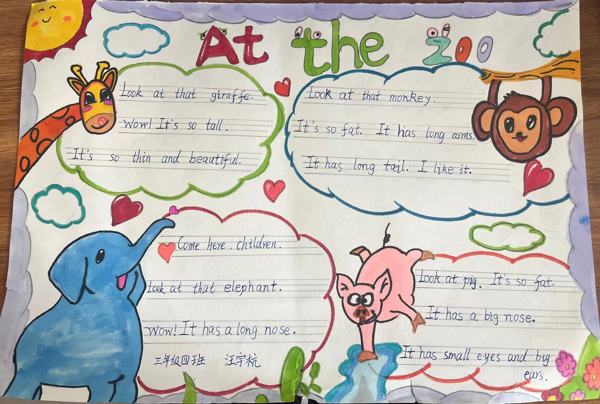 At the Zoo
Look at that giraffe.
Wow! It's so tall.
It's so thin and beautiful.
Look at that monkey.
It's so fat. It has long arms.
It has long tail. I like it.
Come here. children.
Look at that elephant.
Wow! It has a long nose.
三年级四班 汪宇杭
Look at pig. It's so fat.
It has a big nose.
It has small eyes and big
ears.